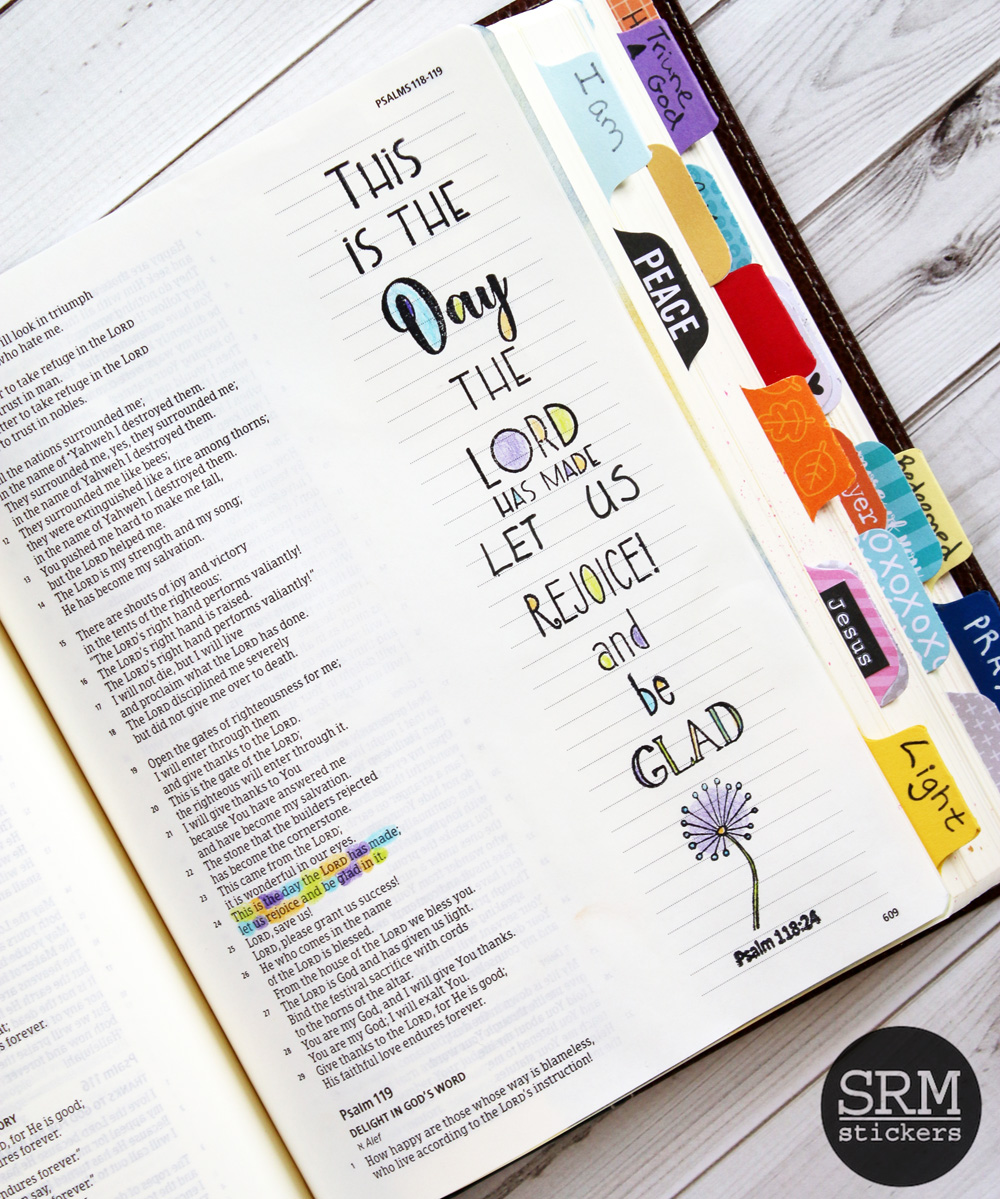 PSALMS 118-119
THiS
iS THE
Day
THE
LORD
HAS MADE
LET US
REJOICE!
and
be
GLAD
Psalm 118:24
609
will look in triumph
who hate me.
to take refuge in the LORD
trust in man.
to take refuge in the LORD
to trust in nobles.
the nations surrounded me;
in the name of Yahweh I destroyed them.
They surrounded me, yes, they surrounded me;
in the name of Yahweh I destroyed them.
12 They surrounded me like bees;
they were extinguished like a fire among thorns;
in the name of Yahweh I destroyed them.
13 You pushed me hard to make me fall,
but the LORD helped me.
14 The LORD is my strength and my song;
He has become my salvation.
15 There are shouts of joy and victory
in the tents of the righteous:
"The LORD's right hand performs valiantly!
16 The LORD's right hand is raised.
The LORD's right hand performs valiantly!"
17 I will not die, but I will live
and proclaim what the LORD has done.
18 The LORD disciplined me severely
but did not give me over to death.
19 Open the gates of righteousness for me;
I will enter through them
and give thanks to the LORD.
20 This is the gate of the LORD;
the righteous will enter through it.
21 I will give thanks to You
because You have answered me
and have become my salvation.
22 The stone that the builders rejected
has become the cornerstone.
23 This came from the LORD;
it is wonderful in our eyes.
24 This is the day the LORD has made;
let us rejoice and be glad in it.
25 LORD, save us!
LORD, please grant us success!
26 He who comes in the name
of the LORD is blessed.
From the house of the LORD we bless you.
27 The LORD is God and has given us light.
Bind the festival sacrifice with cords
to the horns of the altar.
28 You are my God, and I will give You thanks.
You are my God; I will exalt You.
29 Give thanks to the LORD, for He is good;
His faithful love endures forever.
Psalm 119
DELIGHT IN GOD'S WORD
א Alef
1 How happy are those whose way is blameless,
who live according to the LORD's instruction!
forever.
for He is good;
forever.
endures forever."
say,
forever."
H
Triune
God
I am
PEACE
Redeemed
yer
OXOXOX
Jesus
PRA
Light
SRM
stickers